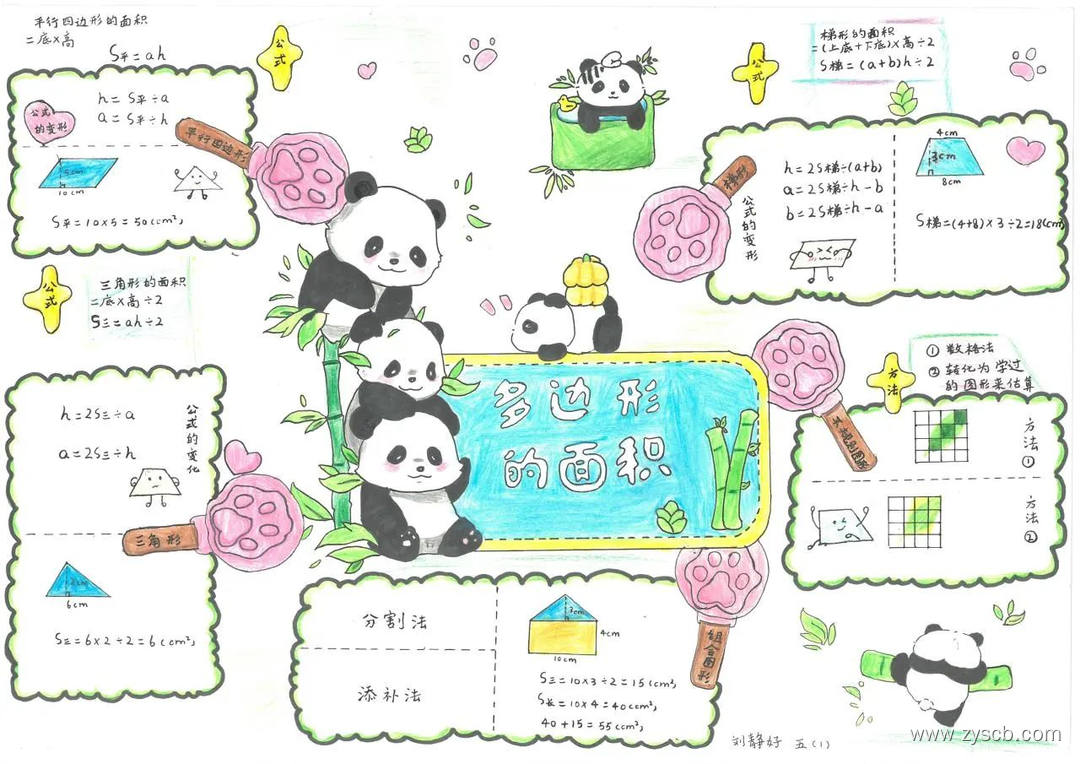 平行四边形的面积
=底×高
S平=ah
公式
公式
的变形
h=S平÷a
a=S平÷h
平行四边形
5cm
10cm
S平=10×5=50(cm²)
公式
三角形的面积
=底×高÷2
S三=ah÷2
h=2S三÷a
a=2S三÷h
公式的变化
三角形
2cm
6cm
S三=6×2÷2=6(cm²)
多边形
的面积
公式
梯形的面积
=(上底+下底)×高÷2
S梯=(a+b)h÷2
梯形
公式的变形
h=2S梯÷(a+b)
a=2S梯÷h-b
b=2S梯÷h-a
4cm
3cm
8cm
S梯=(4+8)×3÷2=18(cm²)
方法
① 数格法
② 转化为学过
的图形来估算
不规则图形
方法①
方法②
组合图形
分割法
添补法
3cm
4cm
10cm
S三=10×3÷2=15(cm²)
S长=10×4=40(cm²)
40+15=55(cm²)
刘静好 五(1)
www.zyscb.com